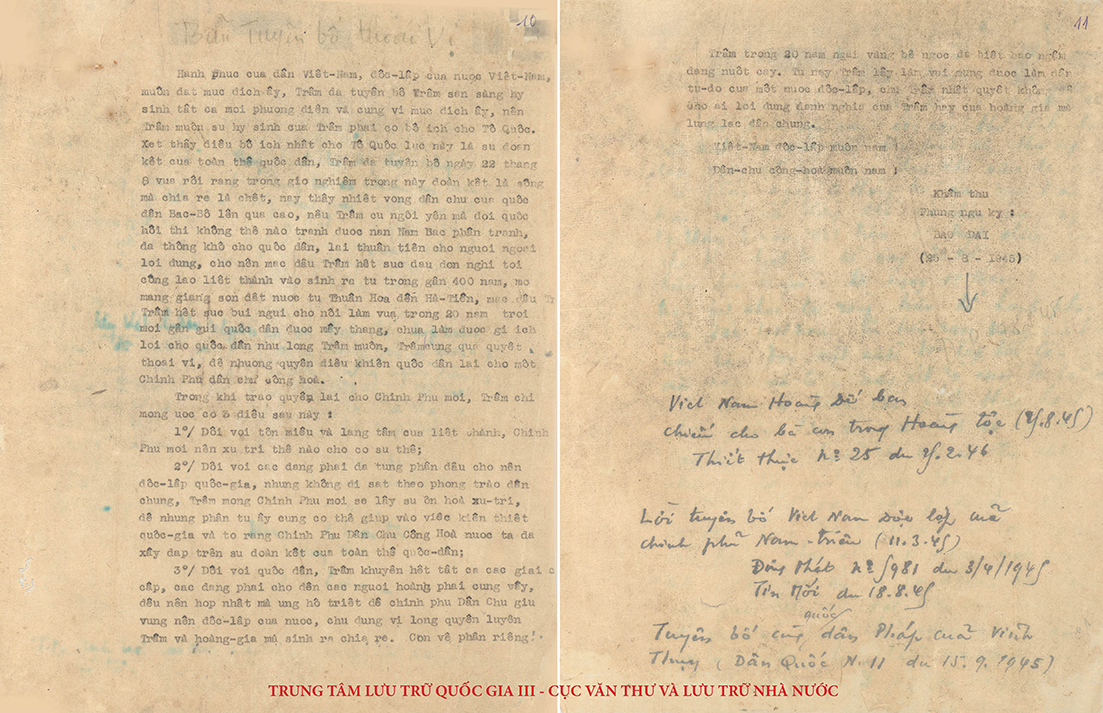 10
Bản Tuyên bố thoái vị
Hanh phuc cua dân Viêt-Nam, đôc-lâp cua nuoc Viêt-Nam,
muôn đat muc đich ây, Trâm đa tuyên bô Trâm san sàng hy
sinh tât ca moi phuong diên và cung vi muc đich ây, nên
Trâm muôn su hy sinh cua Trâm phai co bô ich cho Tô Quôc.
Xet thây điêu bô ich nhât cho Tô Quôc luc này là su đoan
kêt cua toàn thê quôc dân, Trâm đa tuyên bô ngày 22 thang
8 vua rôi rang trong gio nghiêm trong này đoàn kêt là sông
mà chia re là chêt, nay thây nhiêt vong dân chu cua quôc
dân Bac-Bô lên qua cao, nêu Trâm cu ngôi yên mà đoi quôc
hôi thi không thê nào tranh đuoc nan Nam Bac phân tranh,
đa thông khô cho quôc dân, lai thuân tiên cho nguoi ngoai
loi dung, cho nên mac dâu Trâm hêt suc đau đon nghi toi
công lao liêt thành vào sinh ra tu trong gân 400 nam, mo
mang giang son đât nuoc tu Thuân Hoa đên Hà-Tiên, mac dâu Tr
Trâm hêt suc bui ngui cho nôi làm vua trong 20 nam troi
moi gân gui quôc dân đuoc mây thang, chua làm đuoc gi ich
loi cho quôc dân nhu long Trâm muôn, Trâmcung qua quyêt
thoai vi, đê nhuong quyên điêu khiên quôc dân lai cho môt
Chinh Phu dân chu công hoà.
Trong khi trao quyên lai cho Chinh Phu moi, Trâm chi
mong uoc co 3 điêu sau này :
1°/ Dôi voi tôn miêu và lang tâm cua liêt thành, Chinh
Phu moi nên xu tri thê nào cho co su thê;
2°/ Dôi voi cac đang phai đa tung phân đâu cho nên
đôc-lâp quôc-gia, nhung không đi sat theo phong trào dân
chung, Trâm mong Chinh Phu moi se lây su ôn hoà xu-tri,
đê nhung phân tu ây cung co thê giup vào viêc kiên thiêt
quôc-gia và to rang Chinh Phu Dân Chu Công Hoà nuoc ta đa
xây đap trên su đoàn kêt cua toàn thê quôc-dân;
3°/ Dôi voi quôc dân, Trâm khuyên hêt tât ca cac giai c
câp, cac đang phai cho đên cac nguoi hoàng phai cung vây,
đêu nên hop nhât mà ung hô triêt đê chinh phu Dân Chu giu
vung nên đôc-lâp cua nuoc, chu đung vi long quyên luyên
Trâm và hoàng-gia mà sinh ra chia re. Con vê phân riêng!
11
Trâm trong 20 nam ngai vàng bê ngoc đa biêt bao ngâm
đang nuôt cay. Tu nay Trâm lây làm vui mung đuoc làm dân
tu-do cua môt nuoc đôc-lâp, chu Trâm nhât quyêt không đê
cho ai loi dung danh nghia cua Trâm hay cua hoàng gia mà
lung lac dân chung.
Viêt-Nam đôc-lâp muôn nam !
Dân-chu công-hoà muôn nam !
Khâm thu
Phung ngu ky :
BAO DAI
(25 - 8 - 1945)
Việt Nam Hoàng Đế ban
chiếu cho bà con trong Hoàng tộc (25.8.45)
Thiết thực Nº 25 du 25.2.46
Lời tuyên bố Việt Nam Độc lập của
chính phủ Nam-triều (11.3.45)
Đông Phát Nº 5981 du 3/4/1945
Tin Mới du 18.8.45
quốc
Tuyên bố cùng dân Pháp của Vĩnh
Thụy (Dân Quốc N. 11 du 15.9.1945)
TRUNG TÂM LƯU TRỮ QUỐC GIA III - CỤC VĂN THƯ VÀ LƯU TRỮ NHÀ NƯỚC